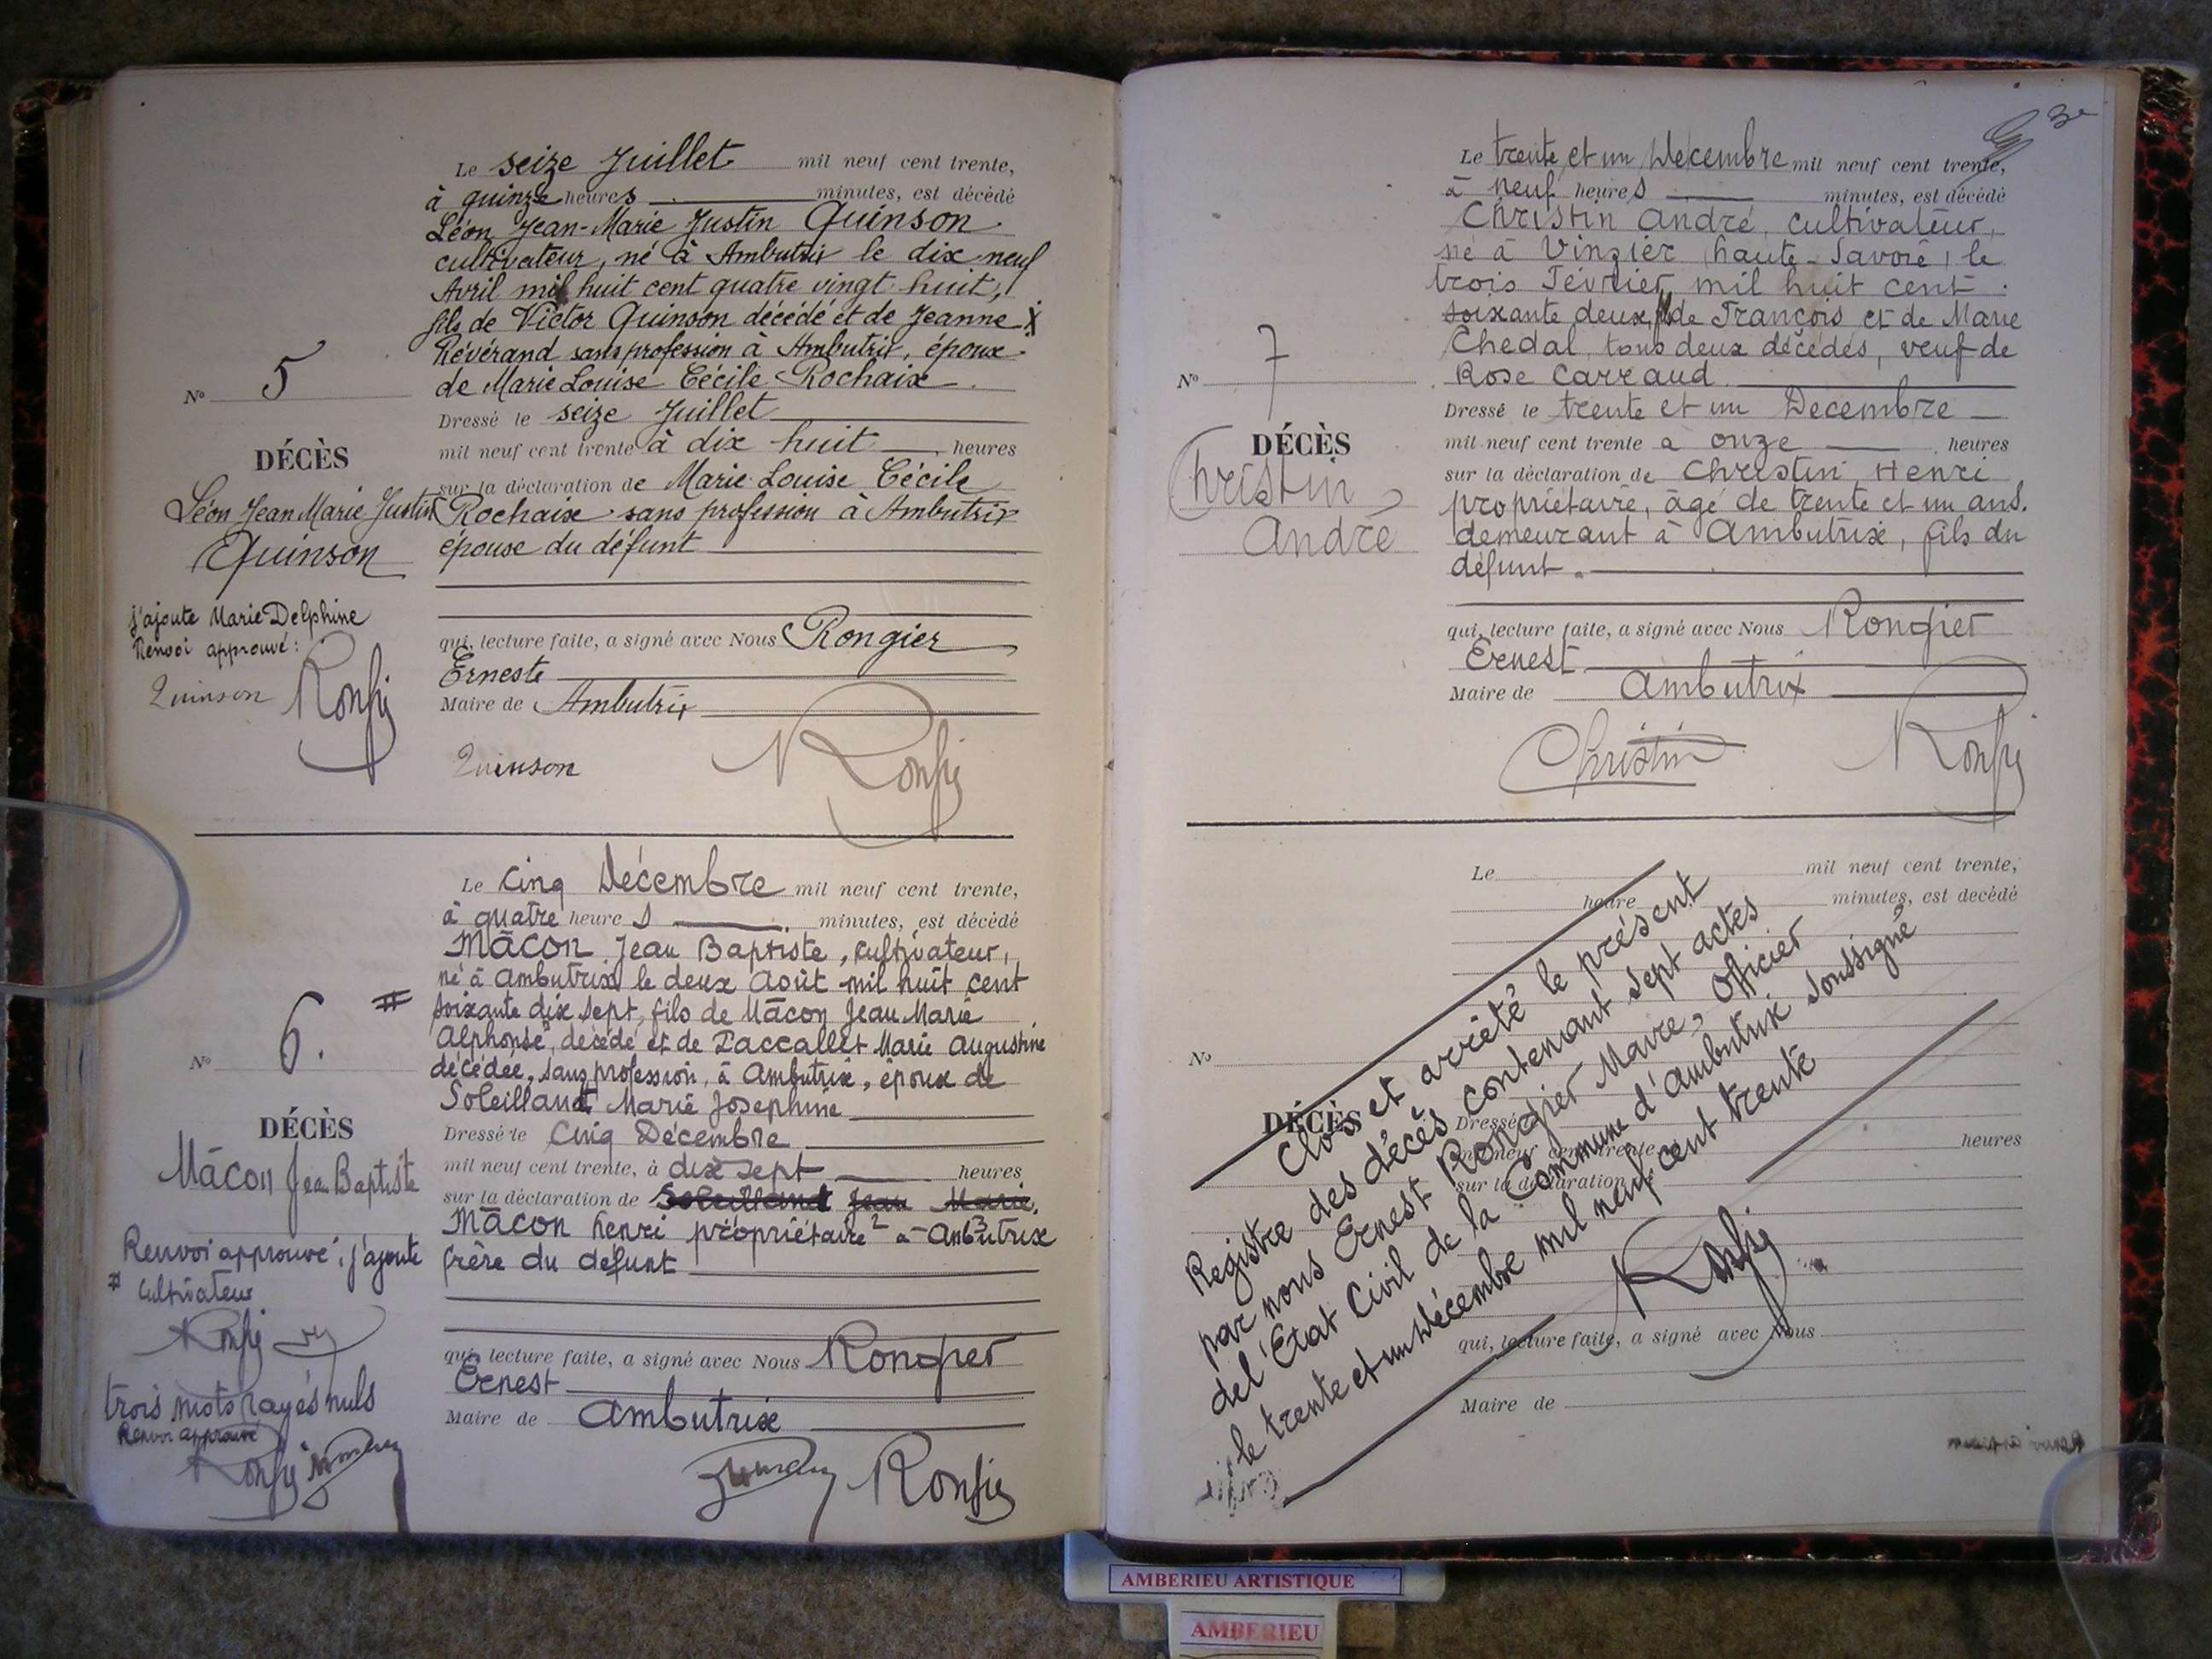 Le seize Juillet mil neuf cent trente,
à quinze heures minutes, est décédé
Léon Jean-Marie Justin Quinson
cultivateur, né à Ambutrix le dix neuf
Avril mil huit cent quatre vingt huit,
fils de Victor Quinson décédé et de Jeanne X
Révérand sans profession à Ambutrix, époux
de Marie Louise Cécile Rochaix
Dressé le seize Juillet
mil neuf cent trente à dix huit heures
sur la déclaration de Marie Louise Cécile
Rochaix sans profession à Ambutrix
épouse du défunt
qui, lecture faite, a signé avec Nous Rongier
Erneste
Maire de Ambutrix
Quinson
No 5
DÉCÈS
Léon Jean Marie Justin
Quinson
J'ajoute Marie Delphine
Renvoi approuvé:
Quinson
Le cinq Décembre mil neuf cent trente,
à quatre heures minutes, est décédé
Mâcon Jean Baptiste, cultivateur,
né à Ambutrix le deux Août mil huit cent
# soixante dix sept, fils de Mâcon Jean Marie
Alphonse, décédé et de Paccallet Marie Augustine
décédée, sans profession, à Ambutrix, époux de
Soleilland Marie Josephine
Dressé le Cinq Décembre
mil neuf cent trente, à dix sept heures
sur la déclaration de Soleilland Jean Marie.
Mâcon henri propriétaire à Ambutrix
frère du défunt
qui, lecture faite, a signé avec Nous Rongier
Ernest
Maire de Ambutrix
No 6.
DÉCÈS
Mâcon Jean Baptiste
Renvoi approuvé: j'ajoute
# cultivateur
trois mots rayés nuls
Renvoi approuvé
3e
Le trente et un Décembre mil neuf cent trente,
à neuf heures minutes, est décédé
Christin André, cultivateur,
né à Vinzier (haute-Savoie) le
trois Février mil huit cent
soixante deux, fils de François et de Marie
Chedal, tous deux décédés, veuf de
Rose Carraud
Dressé le trente et un Decembre
mil neuf cent trente a onze heures
sur la déclaration de Christin Henri
propriétaire, âgé de trente et un ans.
demeurant à Ambutrix, fils du
défunt.
qui, lecture faite, a signé avec Nous Rongier
Ernest
Maire de Ambutrix
Christin
No 7
DÉCÈS
Christin
André
Le mil neuf cent trente,
heure minutes, est décédé
No
DÉCÈS
Dressé
mil neuf cent trente
heures
sur la déclaration
qui, lecture faite, a signé avec Nous
Maire de
Clos et arrêté le présent
Registre des décès contenant sept actes
par nous Ernest Rongier Maire, Officier
de l'Etat Civil de la Commune d'Ambutrix soussigné
le trente et un Décembre mil neuf cent trente
AMBERIEU ARTISTIQUE
AMBERIEU